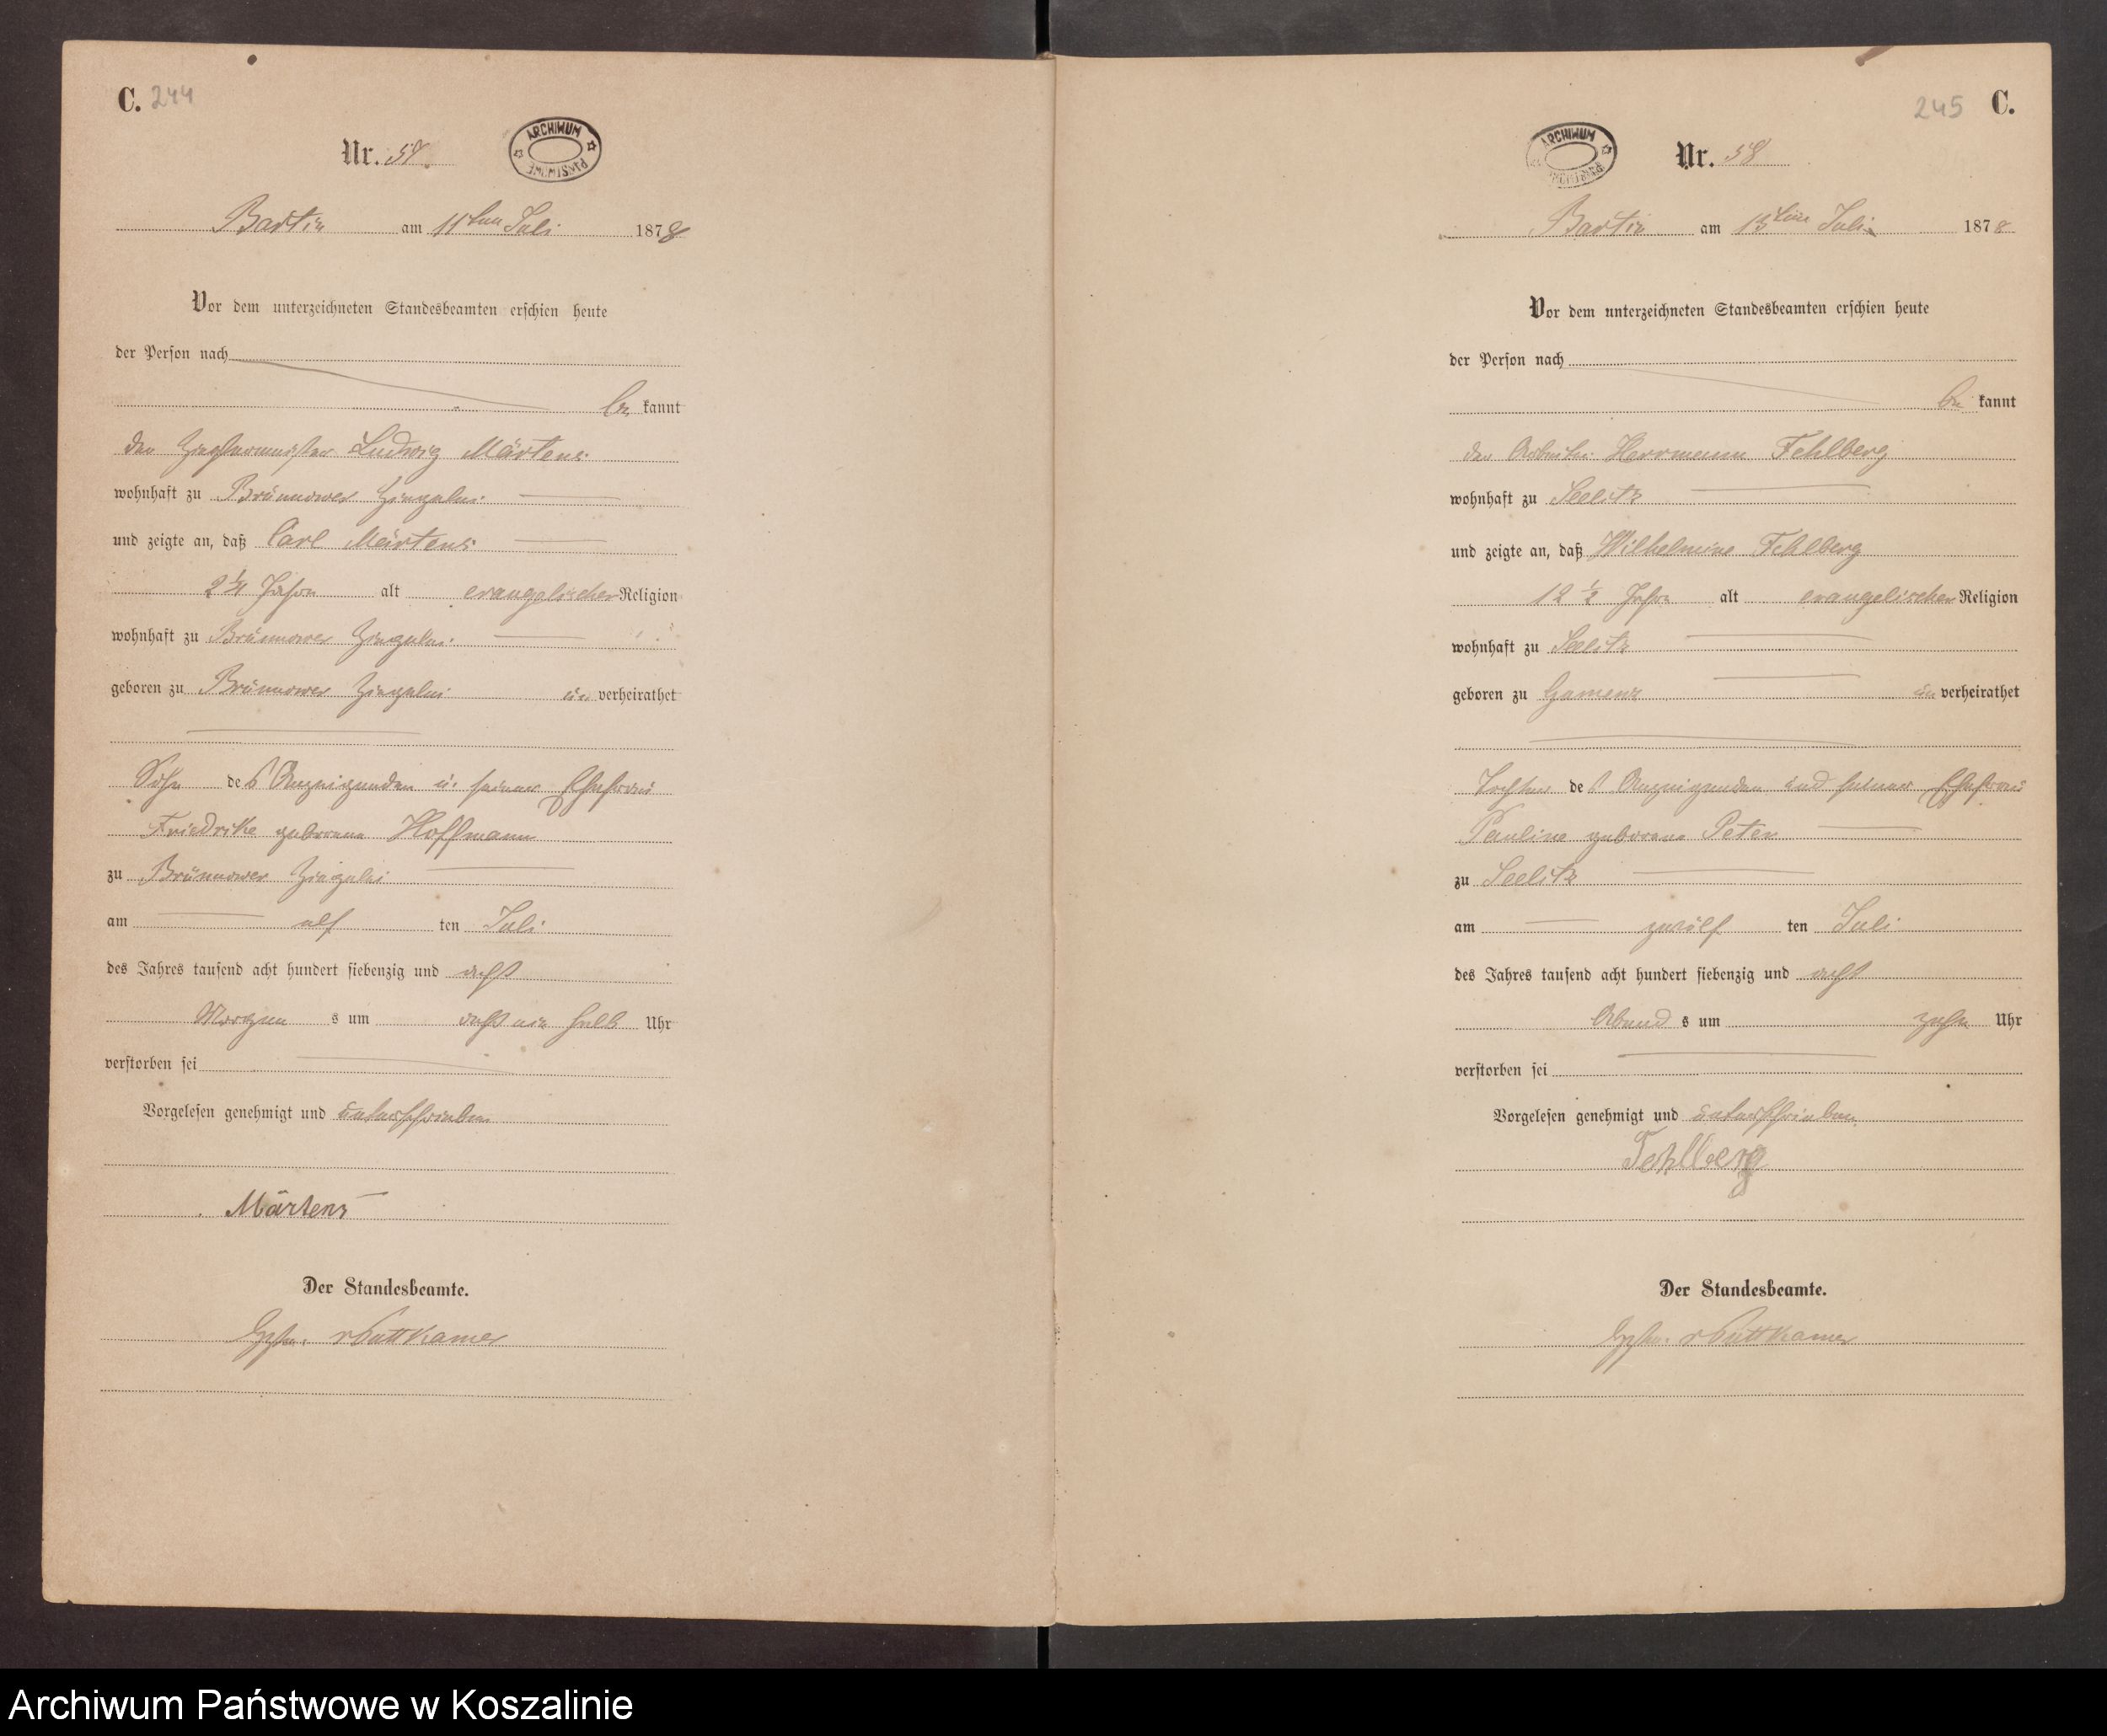 C. 244
Nr. 57.
ARCHIWUM PAŃSTWOWE
Bartin am 11ten Juli 1878
Vor dem unterzeichneten Standesbeamten erschien heute
der Person nach
be kannt
der Zieglermeister Ludwig Märtens
wohnhaft zu Brünnower Ziegelei
und zeigte an, daß Carl Märtens
2 1/4 Jahre alt evangelischer Religion
wohnhaft zu Brünnower Ziegelei
geboren zu Brünnower Ziegelei un verheirathet
Sohn des Anzeigenden u. seiner Ehefrau
Friedrike geborene Hoffmann
zu Brünnower Ziegelei
am elf ten Juli
des Jahres tausend acht hundert siebenzig und acht
Morgen s um acht ein halb Uhr
verstorben sei
Vorgelesen genehmigt und unterschrieben
Märtens
Der Standesbeamte.
v Puttkamer
245 C.
ARCHIWUM PAŃSTWOWE
Nr. 58
Bartin am 13ten Juli 1878
Vor dem unterzeichneten Standesbeamten erschien heute
der Person nach
be kannt
der Arbeiter Herrmann Fehlberg
wohnhaft zu Seelitz
und zeigte an, daß Wilhelmine Fehlberg
12 1/2 Jahre alt evangelischer Religion
wohnhaft zu Seelitz
geboren zu Gamenz un verheirathet
Tochter des Anzeigenden und seiner Ehefrau
Pauline geborene Peter
zu Seelitz
am zwölf ten Juli
des Jahres tausend acht hundert siebenzig und acht
Abend s um zehn Uhr
verstorben sei
Vorgelesen genehmigt und unterschrieben.
Fehlberg
Der Standesbeamte.
v Puttkamer
Archiwum Państwowe w Koszalinie